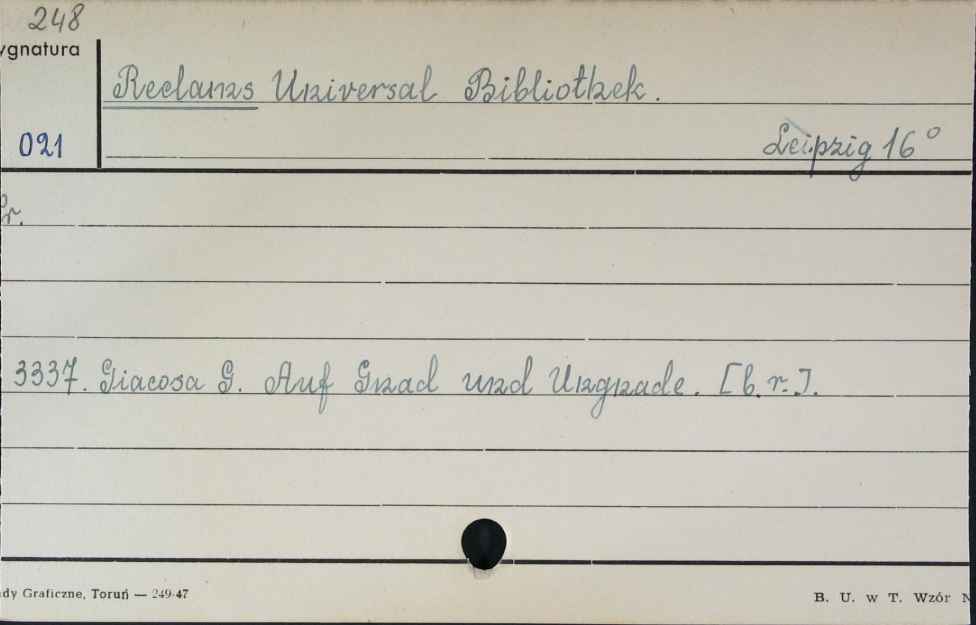 248
ygnatura
Reclams Universal Bibliothek.
021
Leipzig 16°
r.
3337. Giacosa G. Auf Gnad und Ungnade. [b.r.].
dy Graficzne, Toruń — 249-47
B. U. w T. Wzór N